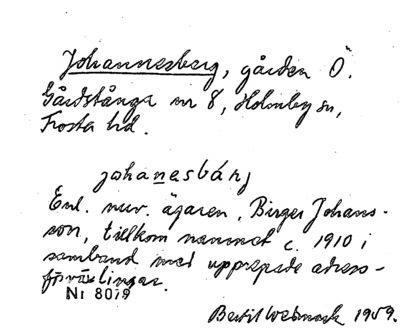 Johannesberg, gården Ö.
Gårdstånga nr 8, Holmby sn,
Frosta hd.
johanesbárj
Enl. nuv. ägaren, Birger Johans-
son, tillkom namnet c. 1910 i
samband med upprepade adress-
förväxlingar.
Nr 8079
Bertil Webmark 1959.